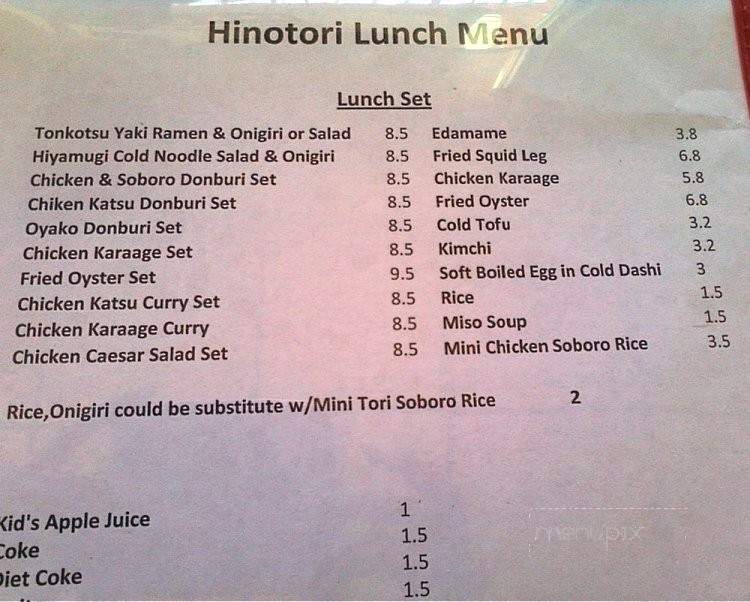 Hinotori Lunch Menu
Lunch Set
Tonkotsu Yaki Ramen & Onigiri or Salad 8.5 Edamame 3.8
Hiyamugi Cold Noodle Salad & Onigiri 8.5 Fried Squid Leg 6.8
Chicken & Soboro Donburi Set 8.5 Chicken Karaage 5.8
Chiken Katsu Donburi Set 8.5 Fried Oyster 6.8
Oyako Donburi Set 8.5 Cold Tofu 3.2
Chicken Karaage Set 8.5 Kimchi 3.2
Fried Oyster Set 9.5 Soft Boiled Egg in Cold Dashi 3
Chicken Katsu Curry Set 8.5 Rice 1.5
Chicken Karaage Curry 8.5 Miso Soup 1.5
Chicken Caesar Salad Set 8.5 Mini Chicken Soboro Rice 3.5
Rice,Onigiri could be substitute w/Mini Tori Soboro Rice 2
Kid's Apple Juice 1
Coke 1.5
Diet Coke 1.5
1.5
menupix